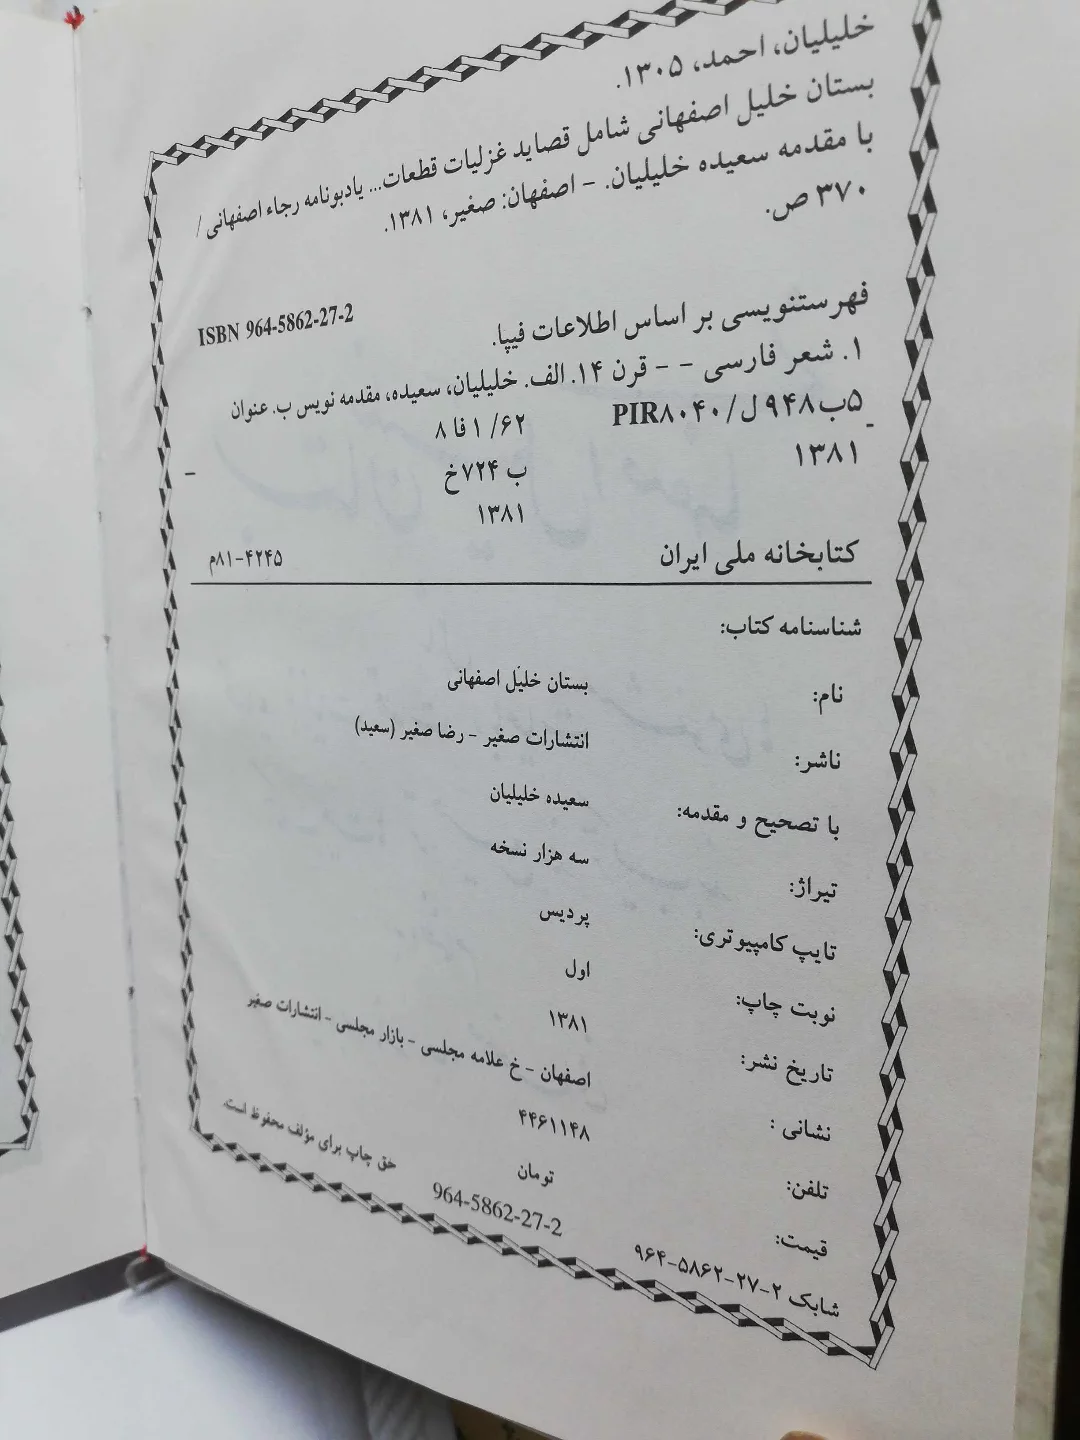 خلیلیان، احمد، ۱۳۰۵.
بستان خلیل اصفهانی شامل قصاید غزلیات قطعات... یادبونامه رجاء اصفهانی /
با مقدمه سعیده خلیلیان. - اصفهان: صغیر، ۱۳۸۱.
۳۷۰ ص.
ISBN 964-5862-27-2
فهرستنویسی بر اساس اطلاعات فیپا.
۱. شعر فارسی - - قرن ۱۴. الف. خلیلیان، سعیده، مقدمه نویس ب. عنوان
۵ب۹۴۸ل/PIR۸۰۴۰ ۸فا ۱/۶۲
۱۳۸۱ ب ۷۲۴خ
۱۳۸۱
کتابخانه ملی ایران ۴۲۴۵-۸۱م
شناسنامه کتاب:
نام: بستان خلیل اصفهانی
ناشر: انتشارات صغیر - رضا صغیر (سعید)
با تصحیح و مقدمه: سعیده خلیلیان
تیراژ: سه هزار نسخه
تایپ کامپیوتری: پردیس
نوبت چاپ: اول
تاریخ نشر: ۱۳۸۱
نشانی : اصفهان - خ علامه مجلسی - بازار مجلسی - انتشارات صغیر
تلفن: ۴۴۶۱۱۴۸
قیمت: تومان حق چاپ برای مؤلف محفوظ است.
شابک ۲-۲۷-۵۸۶۲-۹۶۴ 964-5862-27-2